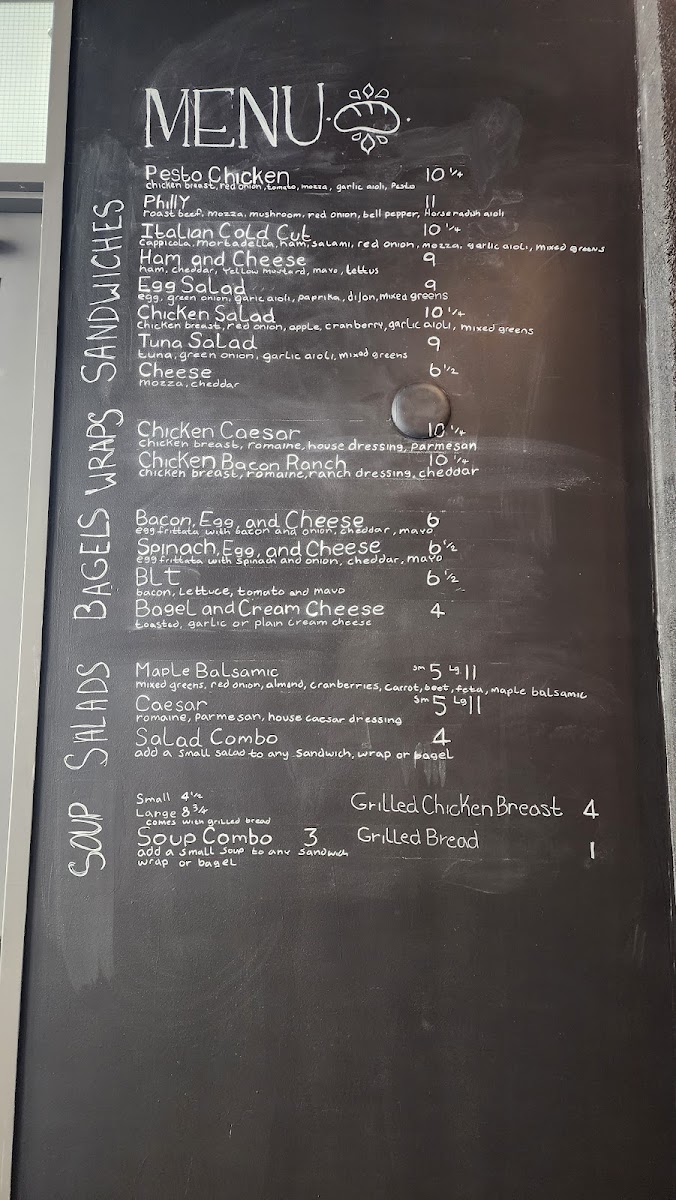 MENU
SANDWICHES
Pesto Chicken 10 1/4
chicken breast, red onion, tomato, mozza, garlic aioli, Pesto
Philly 11
roast beef, mozza, mushroom, red onion, bell pepper, Horseradish aioli
Italian Cold Cut 10 1/4
cappicola, mortadella, ham, salami, red onion, mozza, garlic aioli, mixed greens
Ham and Cheese 9
ham, cheddar, Yellow mustard, mayo, lettus
Egg Salad 9
egg, green onion, garic aioli, paprika, dijon, mixed greens
Chicken Salad 10 1/4
chicken breast, red onion, apple, cranberry, garlic aioli, mixed greens
Tuna Salad 9
tuna, green onion, garlic aioli, mixed greens
Cheese 6 1/2
mozza, cheddar
WRAPS
Chicken Caesar 10 1/4
chicken breast, romaine, house dressing, parmesan
Chicken Bacon Ranch 10 1/4
chicken breast, romaine, ranch dressing, cheddar
BAGELS
Bacon, Egg, and Cheese 6
egg frittata with bacon and onion, cheddar, mayo
Spinach, Egg, and Cheese 6 1/2
egg frittata with spinach and onion, cheddar, mayo
BLT 6 1/2
bacon, Lettuce, tomato and mayo
Bagel and Cream Cheese 4
toasted, garlic or plain cream cheese
SALADS
Maple Balsamic sm 5 Lg 11
mixed greens, red onion, almond, cranberries, carrot, beet, feta, maple balsamic
Caesar sm 5 Lg 11
romaine, parmesan, house caesar dressing
Salad Combo 4
add a small salad to any sandwich, wrap or bagel
SOUP
Small 4 1/2
Large 8 3/4
comes with grilled bread
Soup Combo 3
add a small soup to any sandwich
wrap or bagel
Grilled Chicken Breast 4
Grilled Bread 1